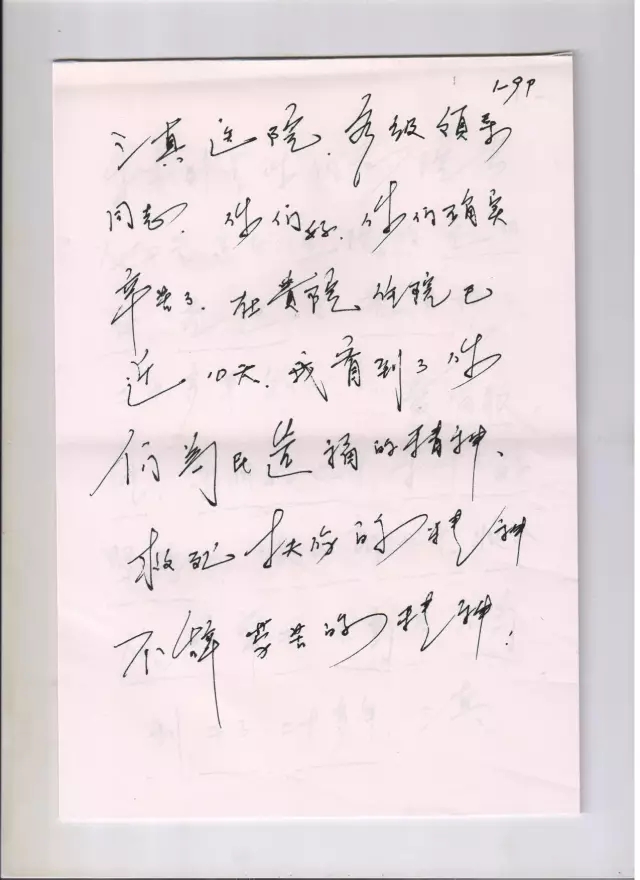 1-9P
三真医院、各级领导
同志、你们好、你们确实
辛苦了、在贵院住院已
近10天、我看到了你
们为民造福的精神、
救死扶伤的精神
不辞劳苦的精神、